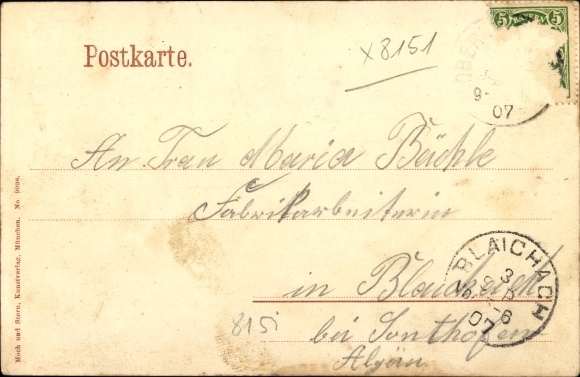 Postkarte.
x 8151
5 BAYERN 5
07
An Frau Maria Bächle
Fabrikarbeiterin
in Blaichach
bei Sonthofen
Algäu
BLAICHACH
07
815
Moch und Stern, Kunstverlag, München. No. 9098.